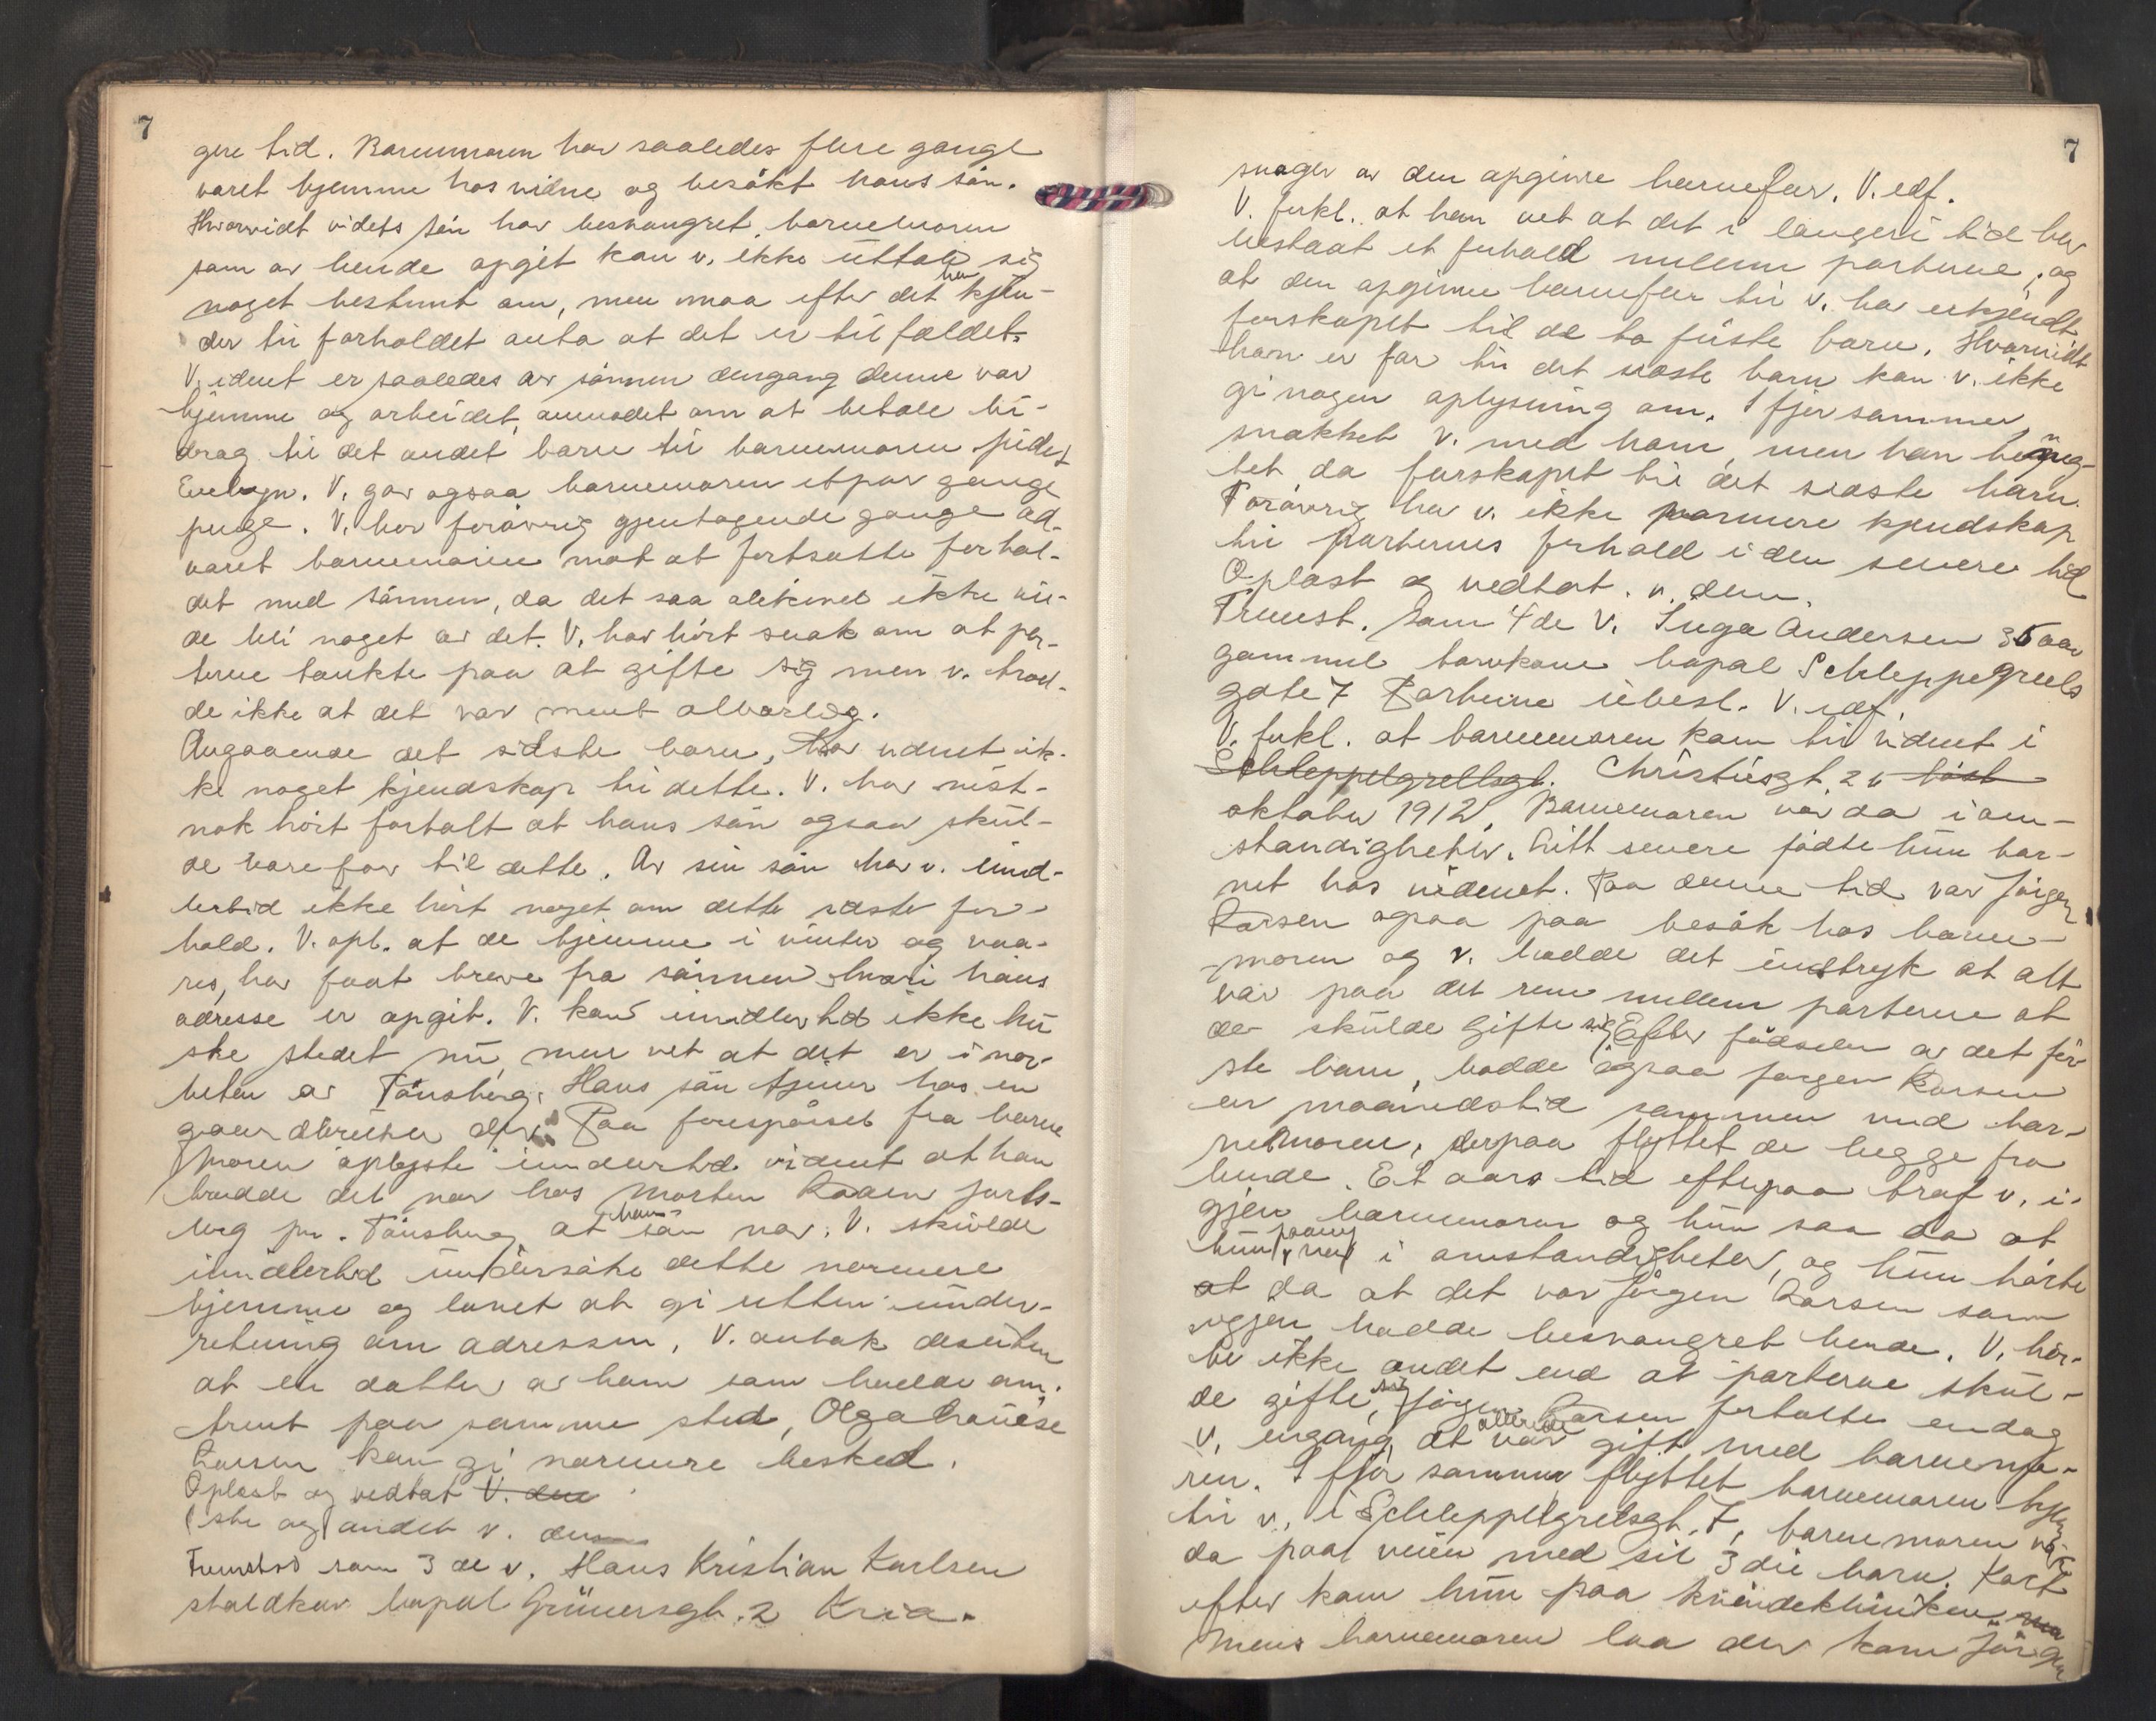 7
gere tid. Barnemoren har saaledes flere gange
været hjemme hos vidne og besökt hans sön.
Hvorvidt vidnets sön har besvangret barnemoren
som av hende opgit kan v. ikke uttale sig
noget bestemt om, men maa efter det han kjen-
der til forholdet anta at det er tilfældet.
Vidnet er saaledes av sönnen dengang denne var
hjemme og arbeidet, anmodet om at betale bi-
drag til det andet barn til barnemoren
Evelyn. V. gav ogsaa barnemoren etpar gange
penge. V. har forövrig gjentagende gange ad-
varet barnemoren mot at fortsætte forhol-
det med sönnen, da det saa alikevel ikke vil-
de bli noget av det. V. har hört snak om at par-
terne tænkte paa at gifte sig men v. trod-
de ikke at det var ment alvorlig.
Angaaende det sidste barn, har vidnet ik-
ke noget kjendskap til dette. V. har vist-
nok hört fortalt at hans sön ogsaa skul-
de være far til dette. Av sin sön har v. imid-
lertid ikke hört noget om dette sidste for-
hold. V. opl. at de hjemme i vinter og vaa-
res, har faat breve fra sönnen hvori hans
adresse er opgit. V. kan imidlertid ikke hu
ske stedet nu, men vet at det er i nær-
heten av Tönsberg. Hans sön tjener hos en
gaardbruker der. Paa forespörsel fra barne
moren oplyste imidlertid vidnet at han
trodde det var hos Morten Roaen Jarls-
berg pr. Tönsberg at hans sön var. V. skulde
imidlertid undersöke dette nærmere
hjemme og lovet at gi retten under-
retning om adressen. V. antok desuten
at en datter av ham som hadde om-
trent paa samme sted, Olga Lovise
Larsen kan gi nærmere besked.
Oplæst og vedtat V. dem
1ste og andet v. dem
Fremstod som 3 de v. Hans Kristian Karlsen
staldkar bopæl Grünersgt. 2 Kria.
7
svoger av den opgivne barnefar. V. edf.
V. forkl. at han vet at det i længere tid har
bestaat et forhold mellem parterne, og
at den opgivne barnefar til v. har erkjendt
farskapet til de to første barn. Hvorvidt
han er far til det siste barn kan v. ikke
gi nogen oplysning om. I fjor sommer
snakket v. med ham, men han benæg-
tet da farskapet til det sidste barn.
Forövrig har v. ikke nærmere kjendskap
til parternes forhold i den senere tid
Oplæst og vedtat. v. dem.
Fremst. som 4 de V. Inga Andersen 35 aar
gammel kone bopæl Schleppegrels
gate 7 Parterne ubesl. V. edf.
V. forkl. at barnemoren kom til vidnet i
Schleppelgrellsgt. Christiesgt. 26 höst
oktober 1912. Barnemoren var da i om-
standigheter. Litt senere födte hun bar-
net hos vidnet. Paa denne tid var Jörgen
Larsen ogsaa paa besök hos barne-
moren og v. hadde det indtryk at alt
var paa det rene mellem parterne at
de skulde gifte sig. Efter födselen av det för
ste barn, bodde ogsaa Jörgen Larsen
en maanedstid sammen med bar-
nemoren, derpaa flyttet de begge fra
hende. Et aars tid efterpaa traf v. i-
gjen barnemoren og hun saa da at
hun paany var i omstandigheter, og hun hörte
at da at det var Jörgen Larsen som
igjen hadde besvangret hende. V. hör-
te ikke andet end at parterne skul-
de gifte sig, Jörgen Larsen fortalte endog
v. engang, at var allerede gift med barnemo-
ren. I fjor sommer flyttet barnemoren hjem
til v. i Schleppelgrelsgt. 7, barnemoren var
da paa veien med sit 3 die barn. Kort
efter kom hun paa kvindeklinikken
Mens barnemoren laa der kom Jörgen